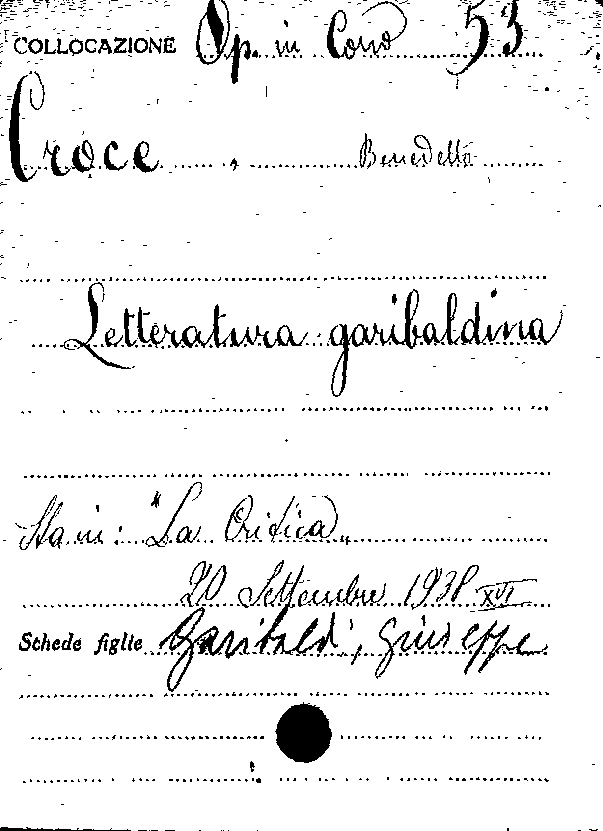 COLLOCAZIONE Op. in Cons 53
Croce, Benedetto
Letteratura garibaldina
Sta in: "La Critica„
20 Settembre 1938 XVI
Schede figlie Garibaldi, Giuseppe